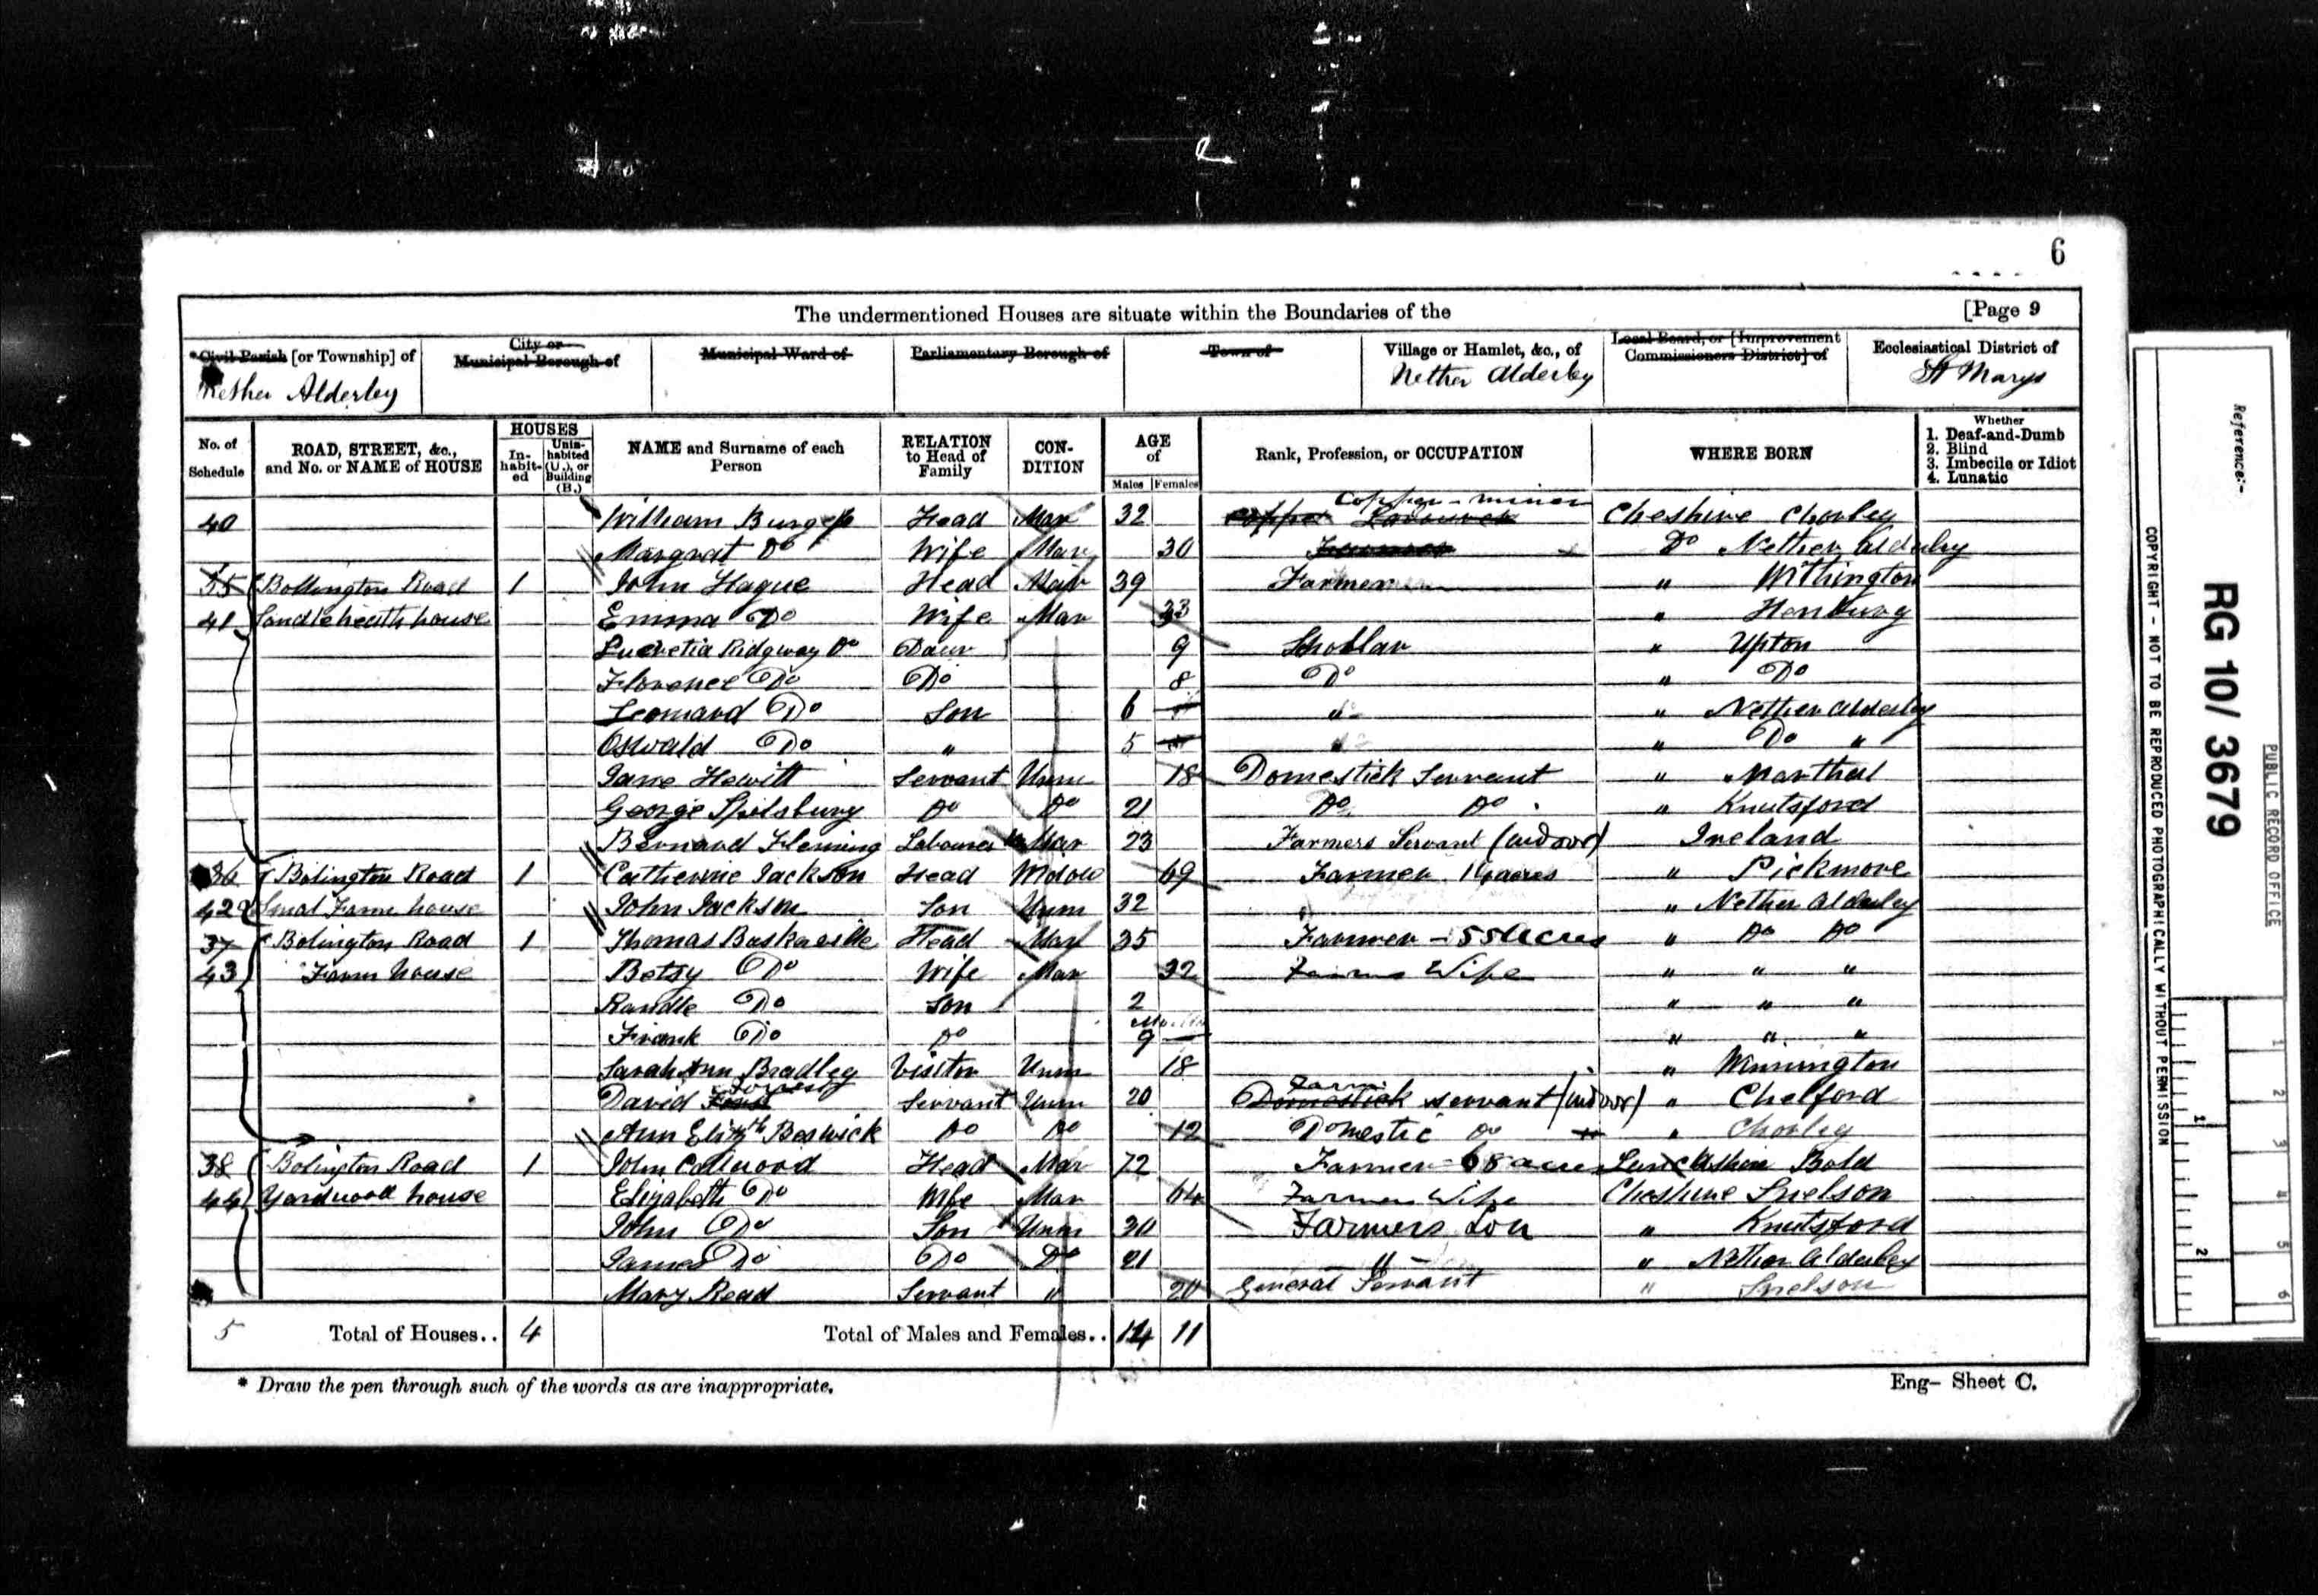 6
The undermentioned Houses are situate within the Boundaries of the [Page 9
*Civil Parish [or Township] of City or Municipal Borough of Municipal Ward of Parliamentary Borough of Town of Village or Hamlet, &c., of Local Board, or [Improvement Commissioners District] of Ecclesiastical District of
Nether Alderley Nether Alderley St Marys
No. of Schedule ROAD, STREET, &c., and No. or NAME of HOUSE HOUSES In-habit-ed Unin-habited (U.), or Building (B.) NAME and Surname of each Person RELATION to Head of Family CON-DITION AGE of Males Females Rank, Profession, or OCCUPATION WHERE BORN Whether 1. Deaf-and-Dumb 2. Blind 3. Imbecile or Idiot 4. Lunatic
40 William Burgess Head Mar 32 Copper miner Cheshire Chorley
Margrat Do Wife Mar 30 Do Nether Alderley
35 Bollington Road 1 John Hague Head Mar 39 Farmer " Withington
41 Sandleheath house Emma Do Wife Mar 33 " Henbury
Lucretia Ridgway Do Daur 9 Schollar " Upton
Florence Do Do 8 Do " Do
Leonard Do Son 6 " " Nether Alderley
Oswald Do " 5 " " Do "
Jane Hewitt Servant Unm 18 Domestick Servant " Marthal
George Spilsbury Do Do 21 Do Do " Knutsford
Bernard Fleming Labourer Mar 23 Farmers Servant (indoor) Ireland
36 Bolington Road 1 Catherine Jackson Head Widow 69 Farmer acres " Pickmore
42 Smal Farm house John Jackson Son Unm 32 " Nether Alderley
37 Bolington Road 1 Thomas Baskerville Head Mar 35 Farmer - 55 Acres " Do Do
43 Farm house Betsy Do Wife Mar 32 Farms Wife " " "
Randle Do Son 2 " " "
Frank Do Do 9 Months " " "
Sarah Ann Bradley Visitor Unm 18 " Winnington
David Servant Unm 20 Farm Domestick servant (indoor) " Chelford
Ann Elizth Beswick Do Do 12 Domestic Do " Chorley
38 Bolington Road 1 John Head Mar 72 Farmer 68 acres Lanckshire Bold
44 Yardwood house Elizabeth Do Wife Mar 64 Farmers Wife Cheshire Snelson
John Do Son Unm 30 Farmers Son " Knutsford
James Do Do Do 21 " " Nether Alderley
Mary Read Servant " 20 General Servant " Snelson
5 Total of Houses.. 4 Total of Males and Females.. 14 11
* Draw the pen through such of the words as are inappropriate.
Eng- Sheet C.
Reference:-
RG 10/ 3679
PUBLIC RECORD OFFICE
COPYRIGHT - NOT TO BE REPRODUCED PHOTOGRAPHICALLY WITHOUT PERMISSION
1 2
1 2 3 4 5 6